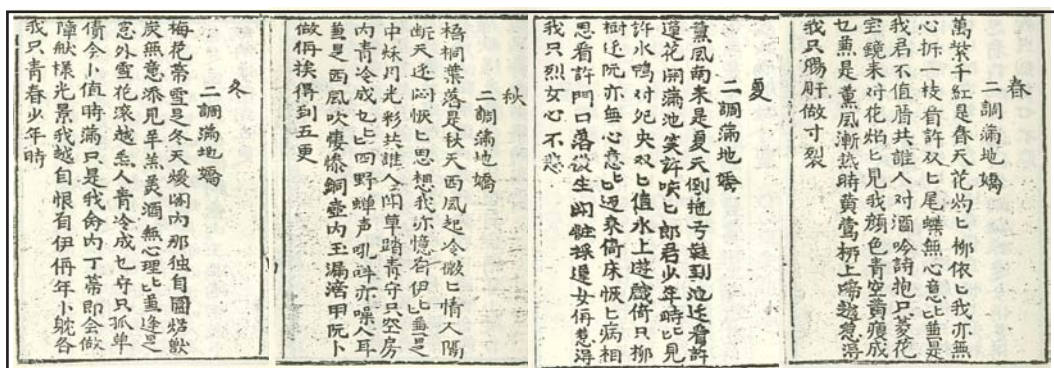 春
二調滿地嬌
萬紫千紅是春天花灼匕柳依匕我亦無
心折一枝看許双匕尾蝶無心意匕匕並是
我君不值脂共誰人对酒吟詩抱只菱花
宝鏡来对花焰匕見我顏色青空黃瘦成
乜並是薰風漸热時黃鶯柳上啼越惹得
我只腸肝做寸裂
夏
二調滿地嬌
薰風南来是夏天倒拖弓鞋到池边看許
蓮花開滿池笑許唉匕郎君少年時匕見
許水鴨对死央双匕值水上遊戲倚只柳
樹边阮亦無心意匕匕返来倚床恹匕病相
思看許門口落從生採還女俩惹得
我只烈女心不悲
秋
二調滿地嬌
梧桐葉落是秋天西風起冷微匕情人隔
断天边悶恹匕思想我亦憶君伊匕匕並是
中秋月光彩共誰人閗草踏青守只空房
内青冷成乜匕匕四野蝉声吼咩亦噪人耳
並是西風吹悽慘銅壺内玉漏滴甲阮卜
做俩挨得到五更
冬
二調滿地嬌
梅花帶雪是冬天煖閣内那独自圍炉獸
炭無意添見羊羔美酒無心理匕匕並逢是
窓外雪花滾越愁人青冷成乜守只孤单
债今卜值時滿只是我命内丁蒂即会做
障獃樣光景我越自恨看伊俩年卜躭各
我只青春少年時